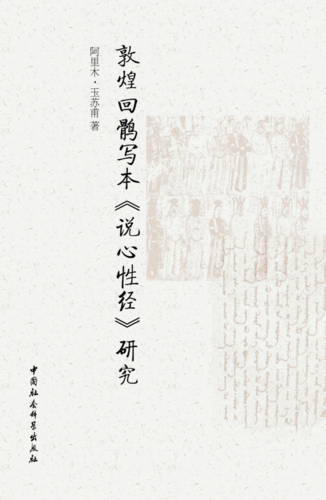 敦煌回鹘写本《说心性经》研究
阿里木·玉苏甫 著
中国社会科学出版社